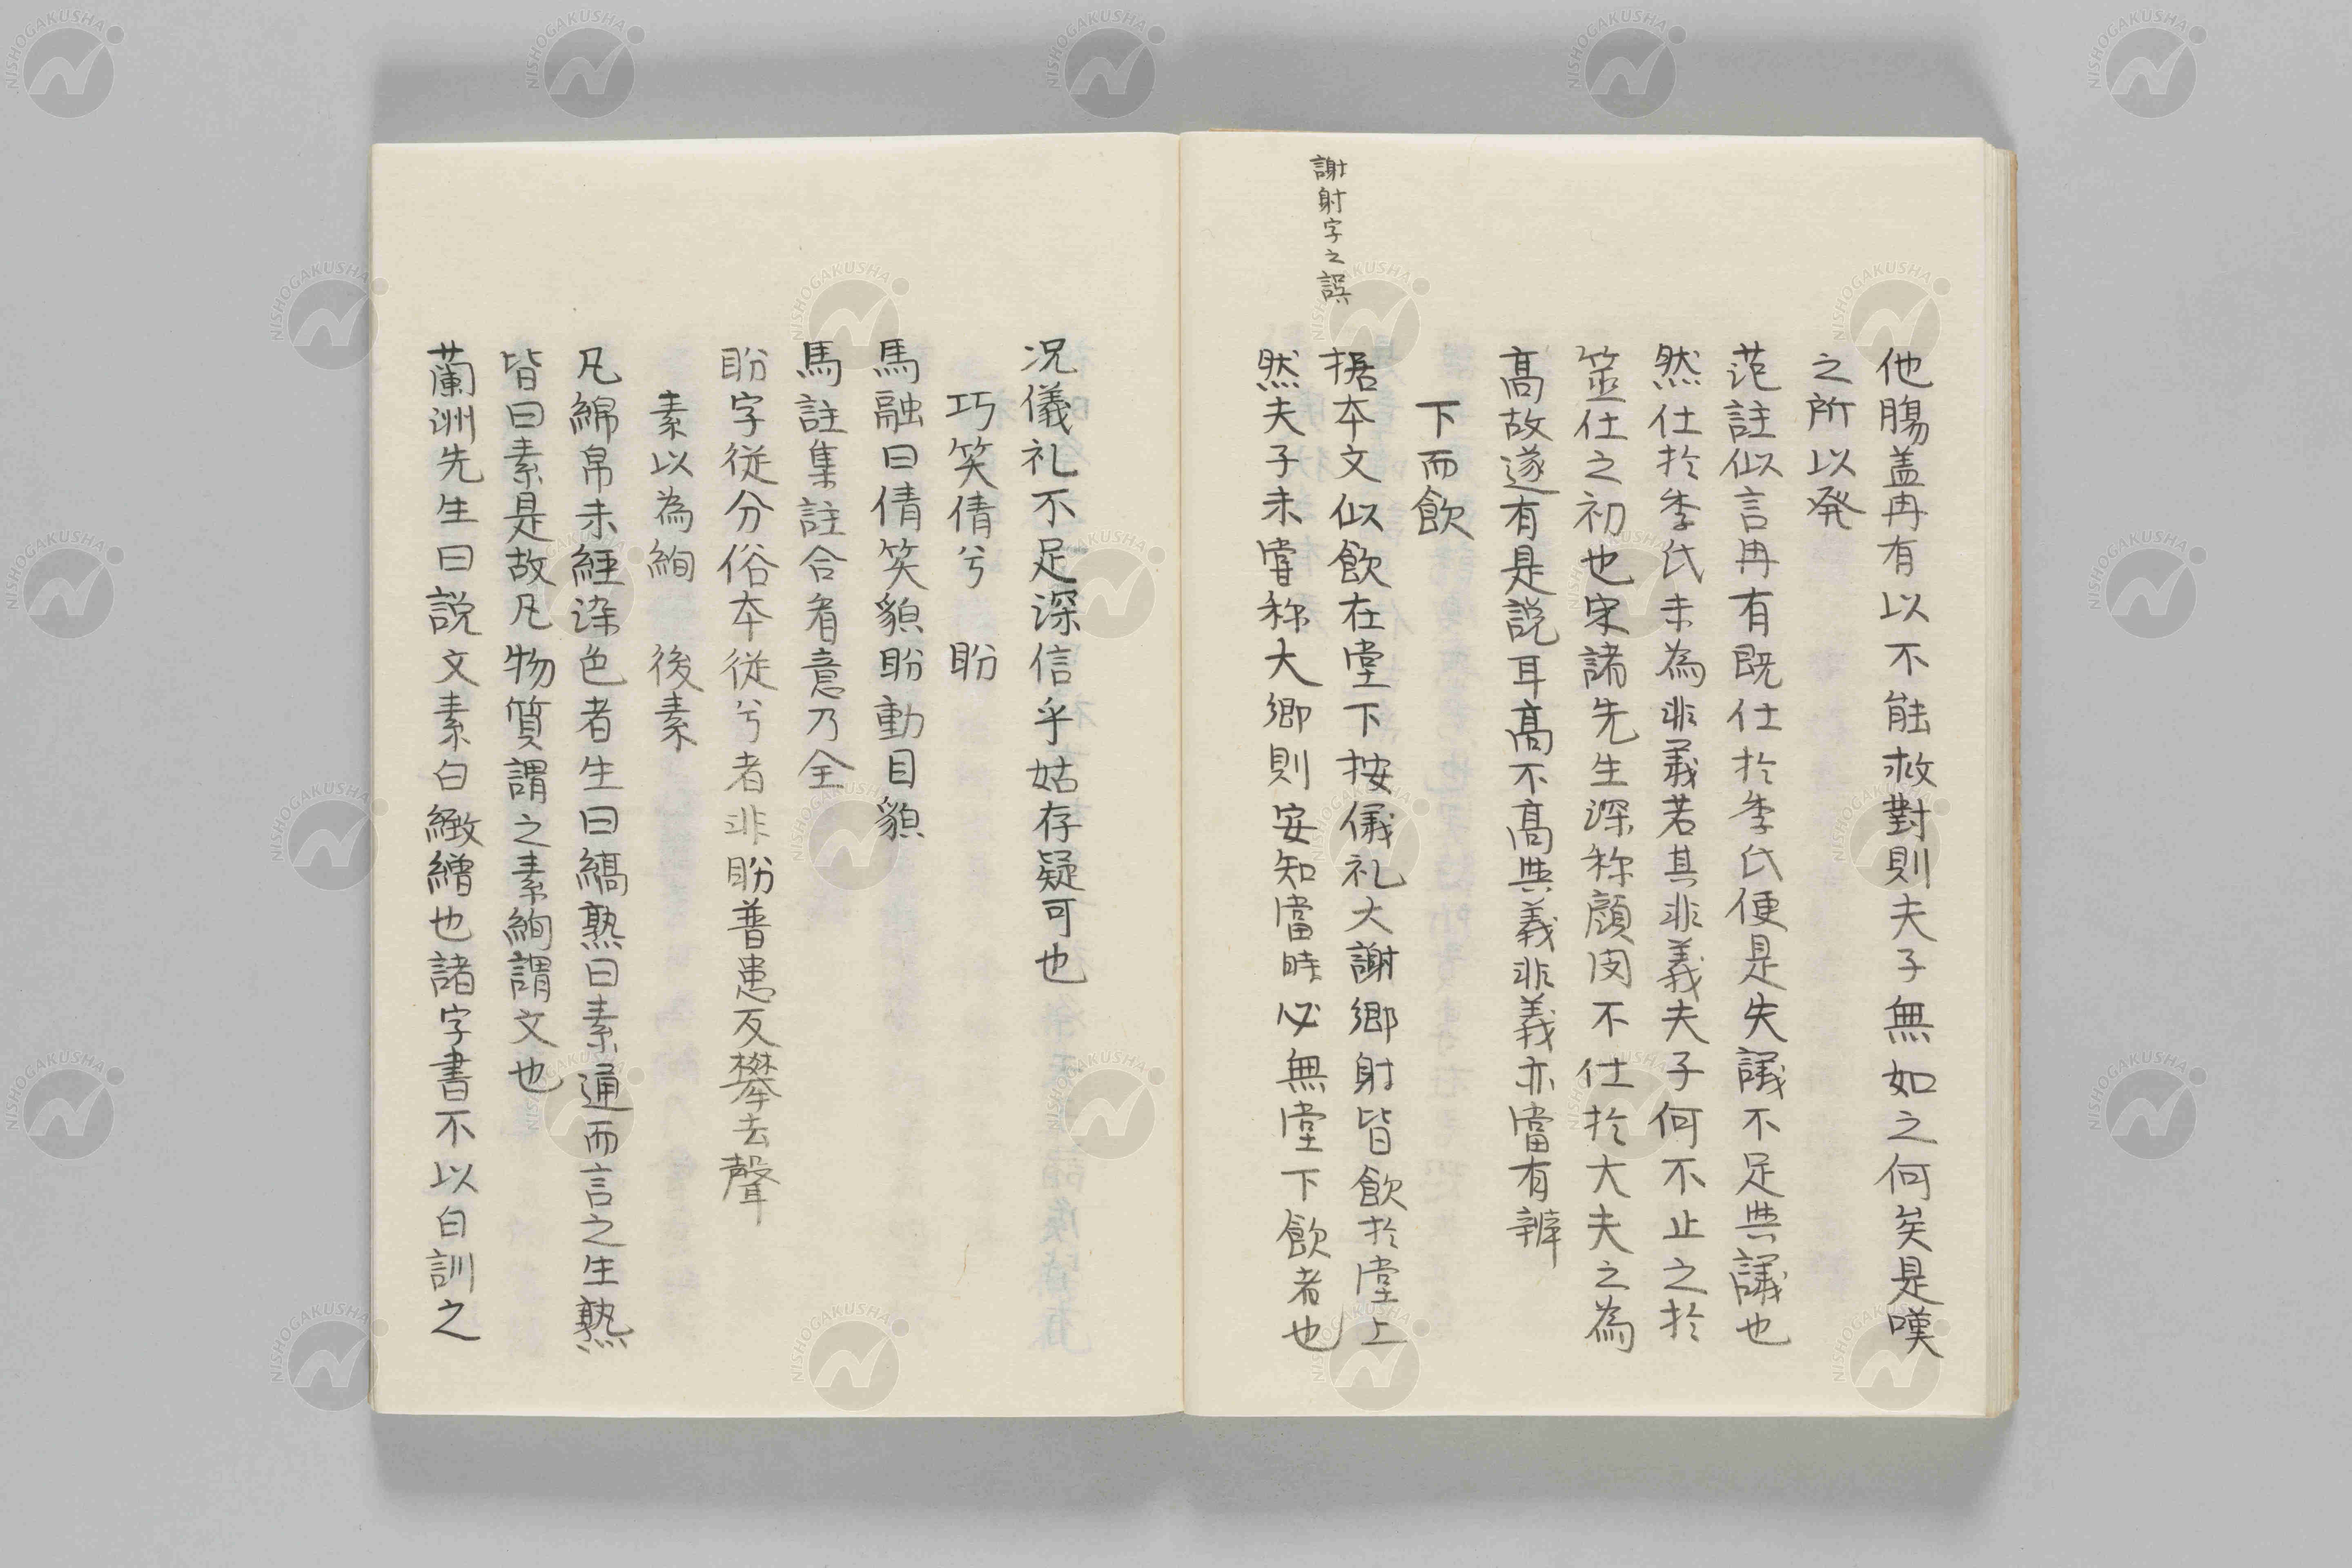 他腸盖冉有以不能救對則夫子無如之何矣是嘆
之所以発
范註似言冉有既仕於季氏便是失議不足與議也
然仕於季氏未為非義若其非義夫子何不止之於
筮仕之初也宋諸先生深称顔閔不仕於大夫之為
高故遂有是説耳高不高與義非義亦當有辨
下而飲
謝射字之誤
据本文似飲在堂下按儀礼大謝郷射皆飲於堂上
然夫子未嘗称大郷則安知當時必無堂下飲者也
况儀礼不足深信乎姑存疑可也
巧笑倩兮 盼
馬融曰倩笑貌盼動目貌
馬註集註合看意乃全
盼字従分俗本従兮者非盼普患反攀去聲
素以為絢 後素
凡綿帛未経染色者生曰縞熟曰素通而言之生熟
皆曰素是故凡物質謂之素絢謂文也
蘭洲先生曰説文素白緻繒也諸字書不以白訓之